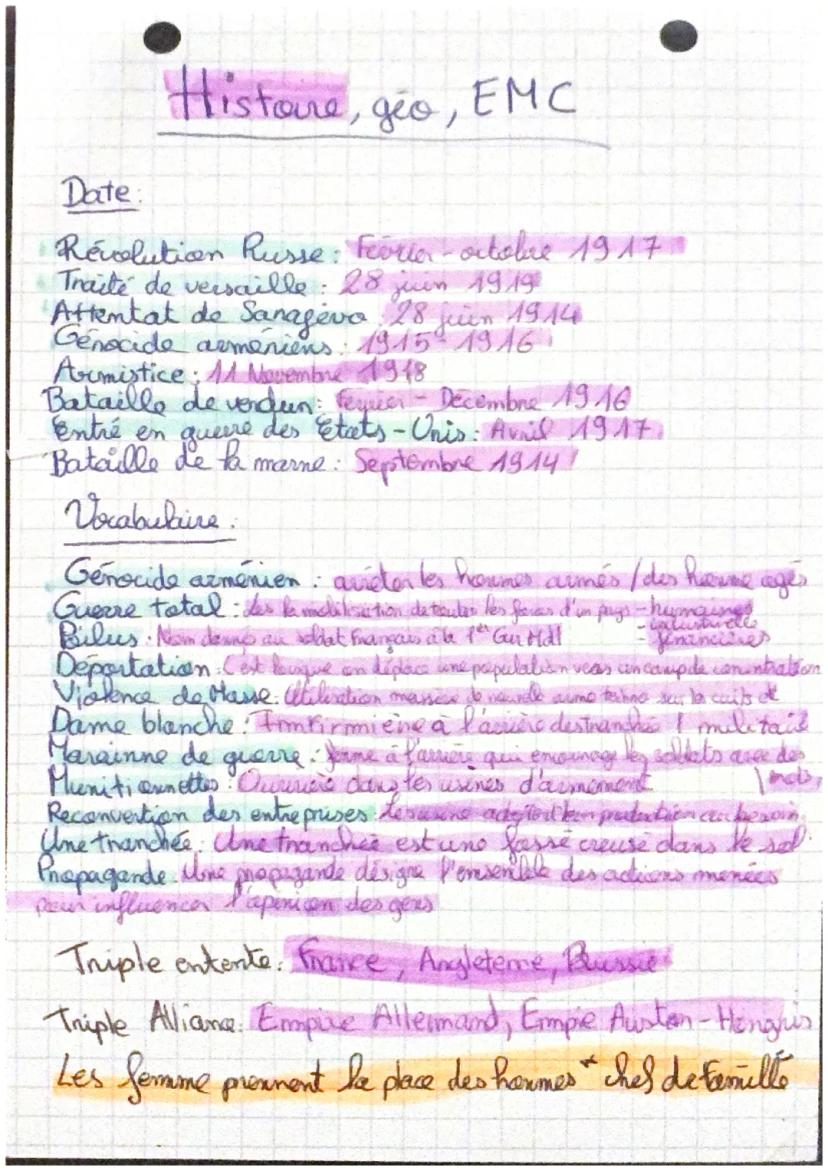 Histoire, géo, EMC
Date:
Révolution Russe: Février-octobre 1917
Traité de versaille: 28 juin 1919
Attentat de Sanagévo 28 juin 1914
Génocide arméniens: 1915-1916
Armistice: 11 Novembre 1918
Bataille de verdun: Février - Décembre 1916
Entré en guerre des États-Unis: Avril 1917
Bataille de la marne: Septembre 1914
Vocabulaire:
Génocide arménien: les hommes armés / des homme agés
Guerre total: la mobilisation de toutes les forces d'un pays - humaines
- industrielle
Poilus: Nom donné au soldat Français à la 1er - financières
Déportation: C'est lorsque on déplace une population vers un camp de concentration
Violence de Masse: Utilisation massive de nouvelle arme sur la
Dame blanche: à l'arrière des tranchée / militaire
Marainne de guerre: femme à l'arrière qui encourage les soldats avec des
Munitionnettes: Ouvrière dans les usines d'armement \ mots,
Reconvertion des entreprises: production au besoin
Une tranchée: Une tranchée est une fossé creusé dans le sol.
Propagande. Une propagande désigne l'ensemble des actions menées
pour influencer l'opinion des gens
Triple entente: France, Angleterre, Russie
Triple Alliance: Empire Allemand, Empie Auston-Hongris
Les femme prennent la place des hommes + chef de famille